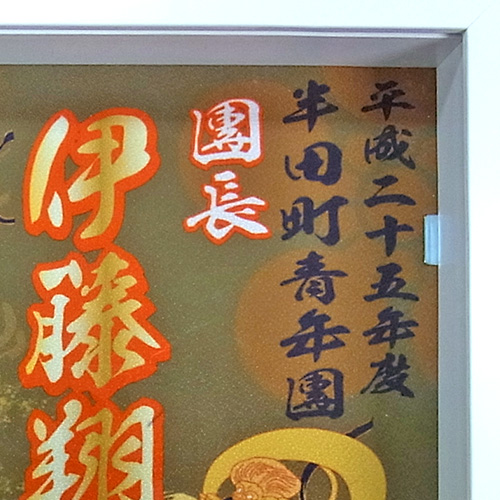 平成二十五年度
半田町青年團
團長
伊藤翔